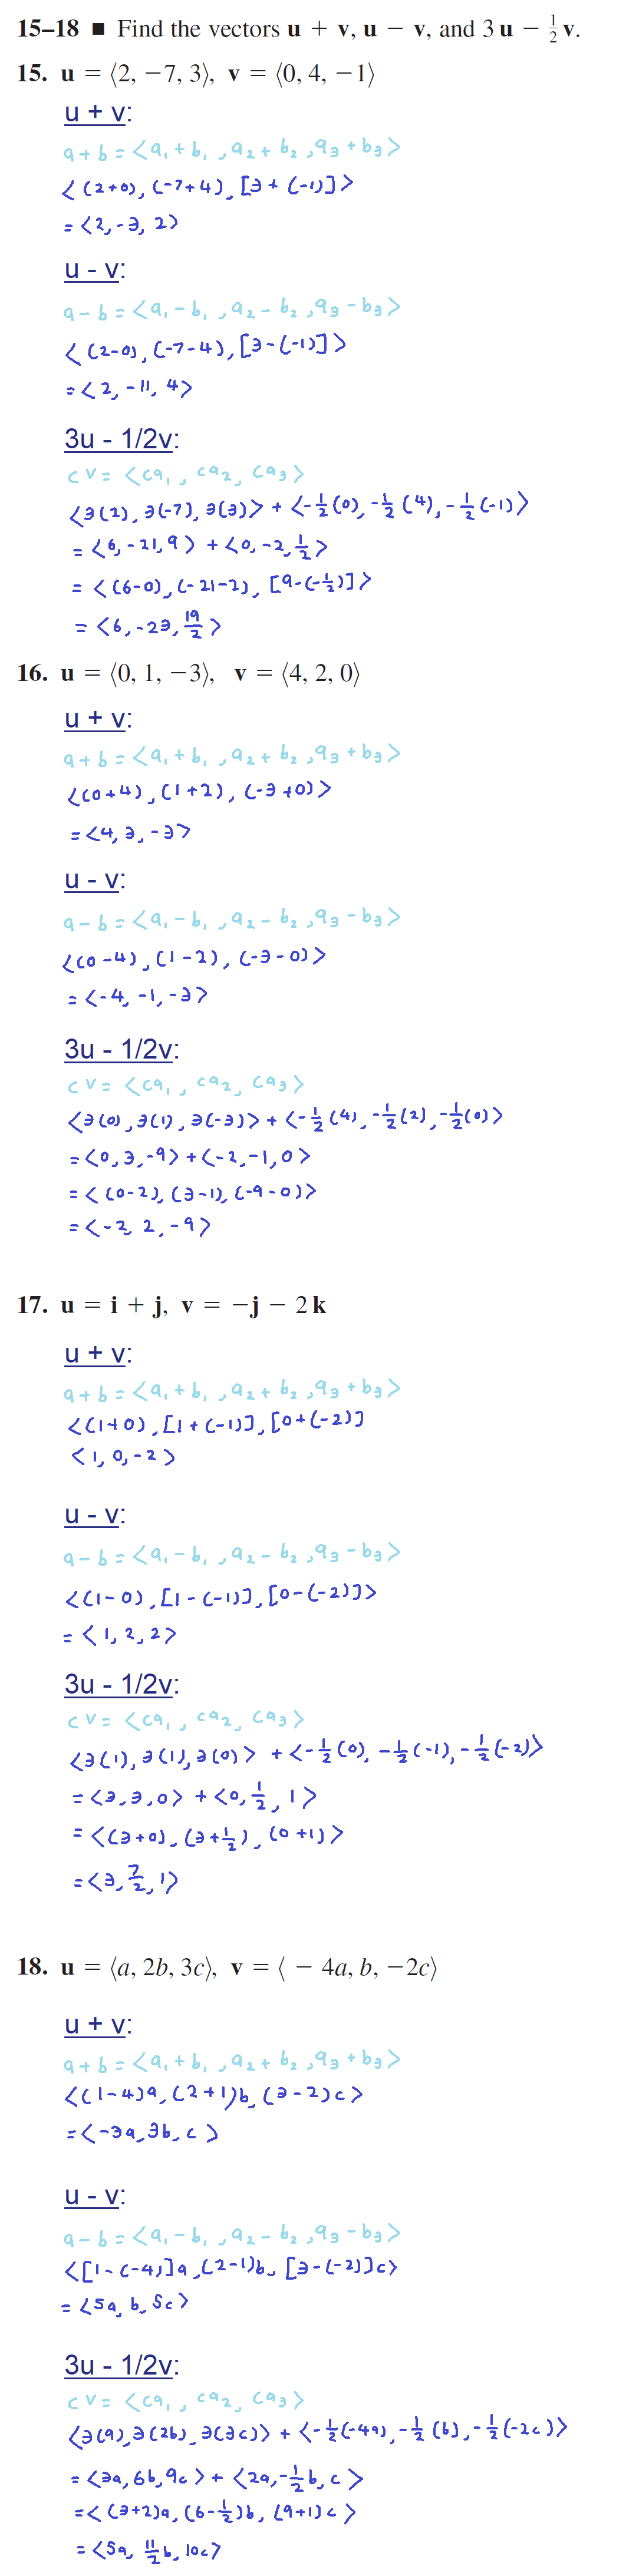 15–18 ■ Find the vectors u + v, u − v, and 3 u − ½ v.
15. u = ⟨2, −7, 3⟩, v = ⟨0, 4, −1⟩
u + v:
a + b = <a₁ + b₁, a₂ + b₂, a₃ + b₃>
<(2+0), (-7+4), [3 + (-1)]>
= <2, -3, 2>
u - v:
a - b = <a₁ - b₁, a₂ - b₂, a₃ - b₃>
<(2-0), (-7-4), [3-(-1)]>
= <2, -11, 4>
3u - 1/2v:
cv = <ca₁, ca₂, ca₃>
<3(2), 3(-7), 3(3)> + <-½(0), -½(4), -½(-1)>
= <6, -21, 9> + <0, -2, ½>
= <(6-0), (-21-2), [9-(-½)]>
= <6, -23, 19/2>
16. u = ⟨0, 1, −3⟩, v = ⟨4, 2, 0⟩
u + v:
a + b = <a₁ + b₁, a₂ + b₂, a₃ + b₃>
<(0+4), (1+2), (-3+0)>
= <4, 3, -3>
u - v:
a - b = <a₁ - b₁, a₂ - b₂, a₃ - b₃>
<(0-4), (1-2), (-3-0)>
= <-4, -1, -3>
3u - 1/2v:
cv = <ca₁, ca₂, ca₃>
<3(0), 3(1), 3(-3)> + <-½(4), -½(2), -½(0)>
= <0, 3, -9> + <-2, -1, 0>
= <(0-2), (3-1), (-9-0)>
= <-2, 2, -9>
17. u = i + j, v = −j − 2 k
u + v:
a + b = <a₁ + b₁, a₂ + b₂, a₃ + b₃>
<(1+0), [1 + (-1)], [0+(-2)]
<1, 0, -2>
u - v:
a - b = <a₁ - b₁, a₂ - b₂, a₃ - b₃>
<(1-0), [1-(-1)], [0-(-2)]>
= <1, 2, 2>
3u - 1/2v:
cv = <ca₁, ca₂, ca₃>
<3(1), 3(1), 3(0)> + <-½(0), -½(-1), -½(-2)>
= <3, 3, 0> + <0, ½, 1>
= <(3+0), (3+½), (0+1)>
= <3, 7/2, 1>
18. u = ⟨a, 2b, 3c⟩, v = ⟨ − 4a, b, −2c⟩
u + v:
a + b = <a₁ + b₁, a₂ + b₂, a₃ + b₃>
<(1-4)a, (2+1)b, (3-2)c>
= <-3a, 3b, c>
u - v:
a - b = <a₁ - b₁, a₂ - b₂, a₃ - b₃>
<[1-(-4)]a, (2-1)b, [3-(-2)]c>
= <5a, b, 5c>
3u - 1/2v:
cv = <ca₁, ca₂, ca₃>
<3(a), 3(2b), 3(3c)> + <-½(-4a), -½(b), -½(-2c)>
= <3a, 6b, 9c> + <2a, -½b, c>
= <(3+2)a, (6-½)b, (9+1)c>
= <5a, 11/2b, 10c>